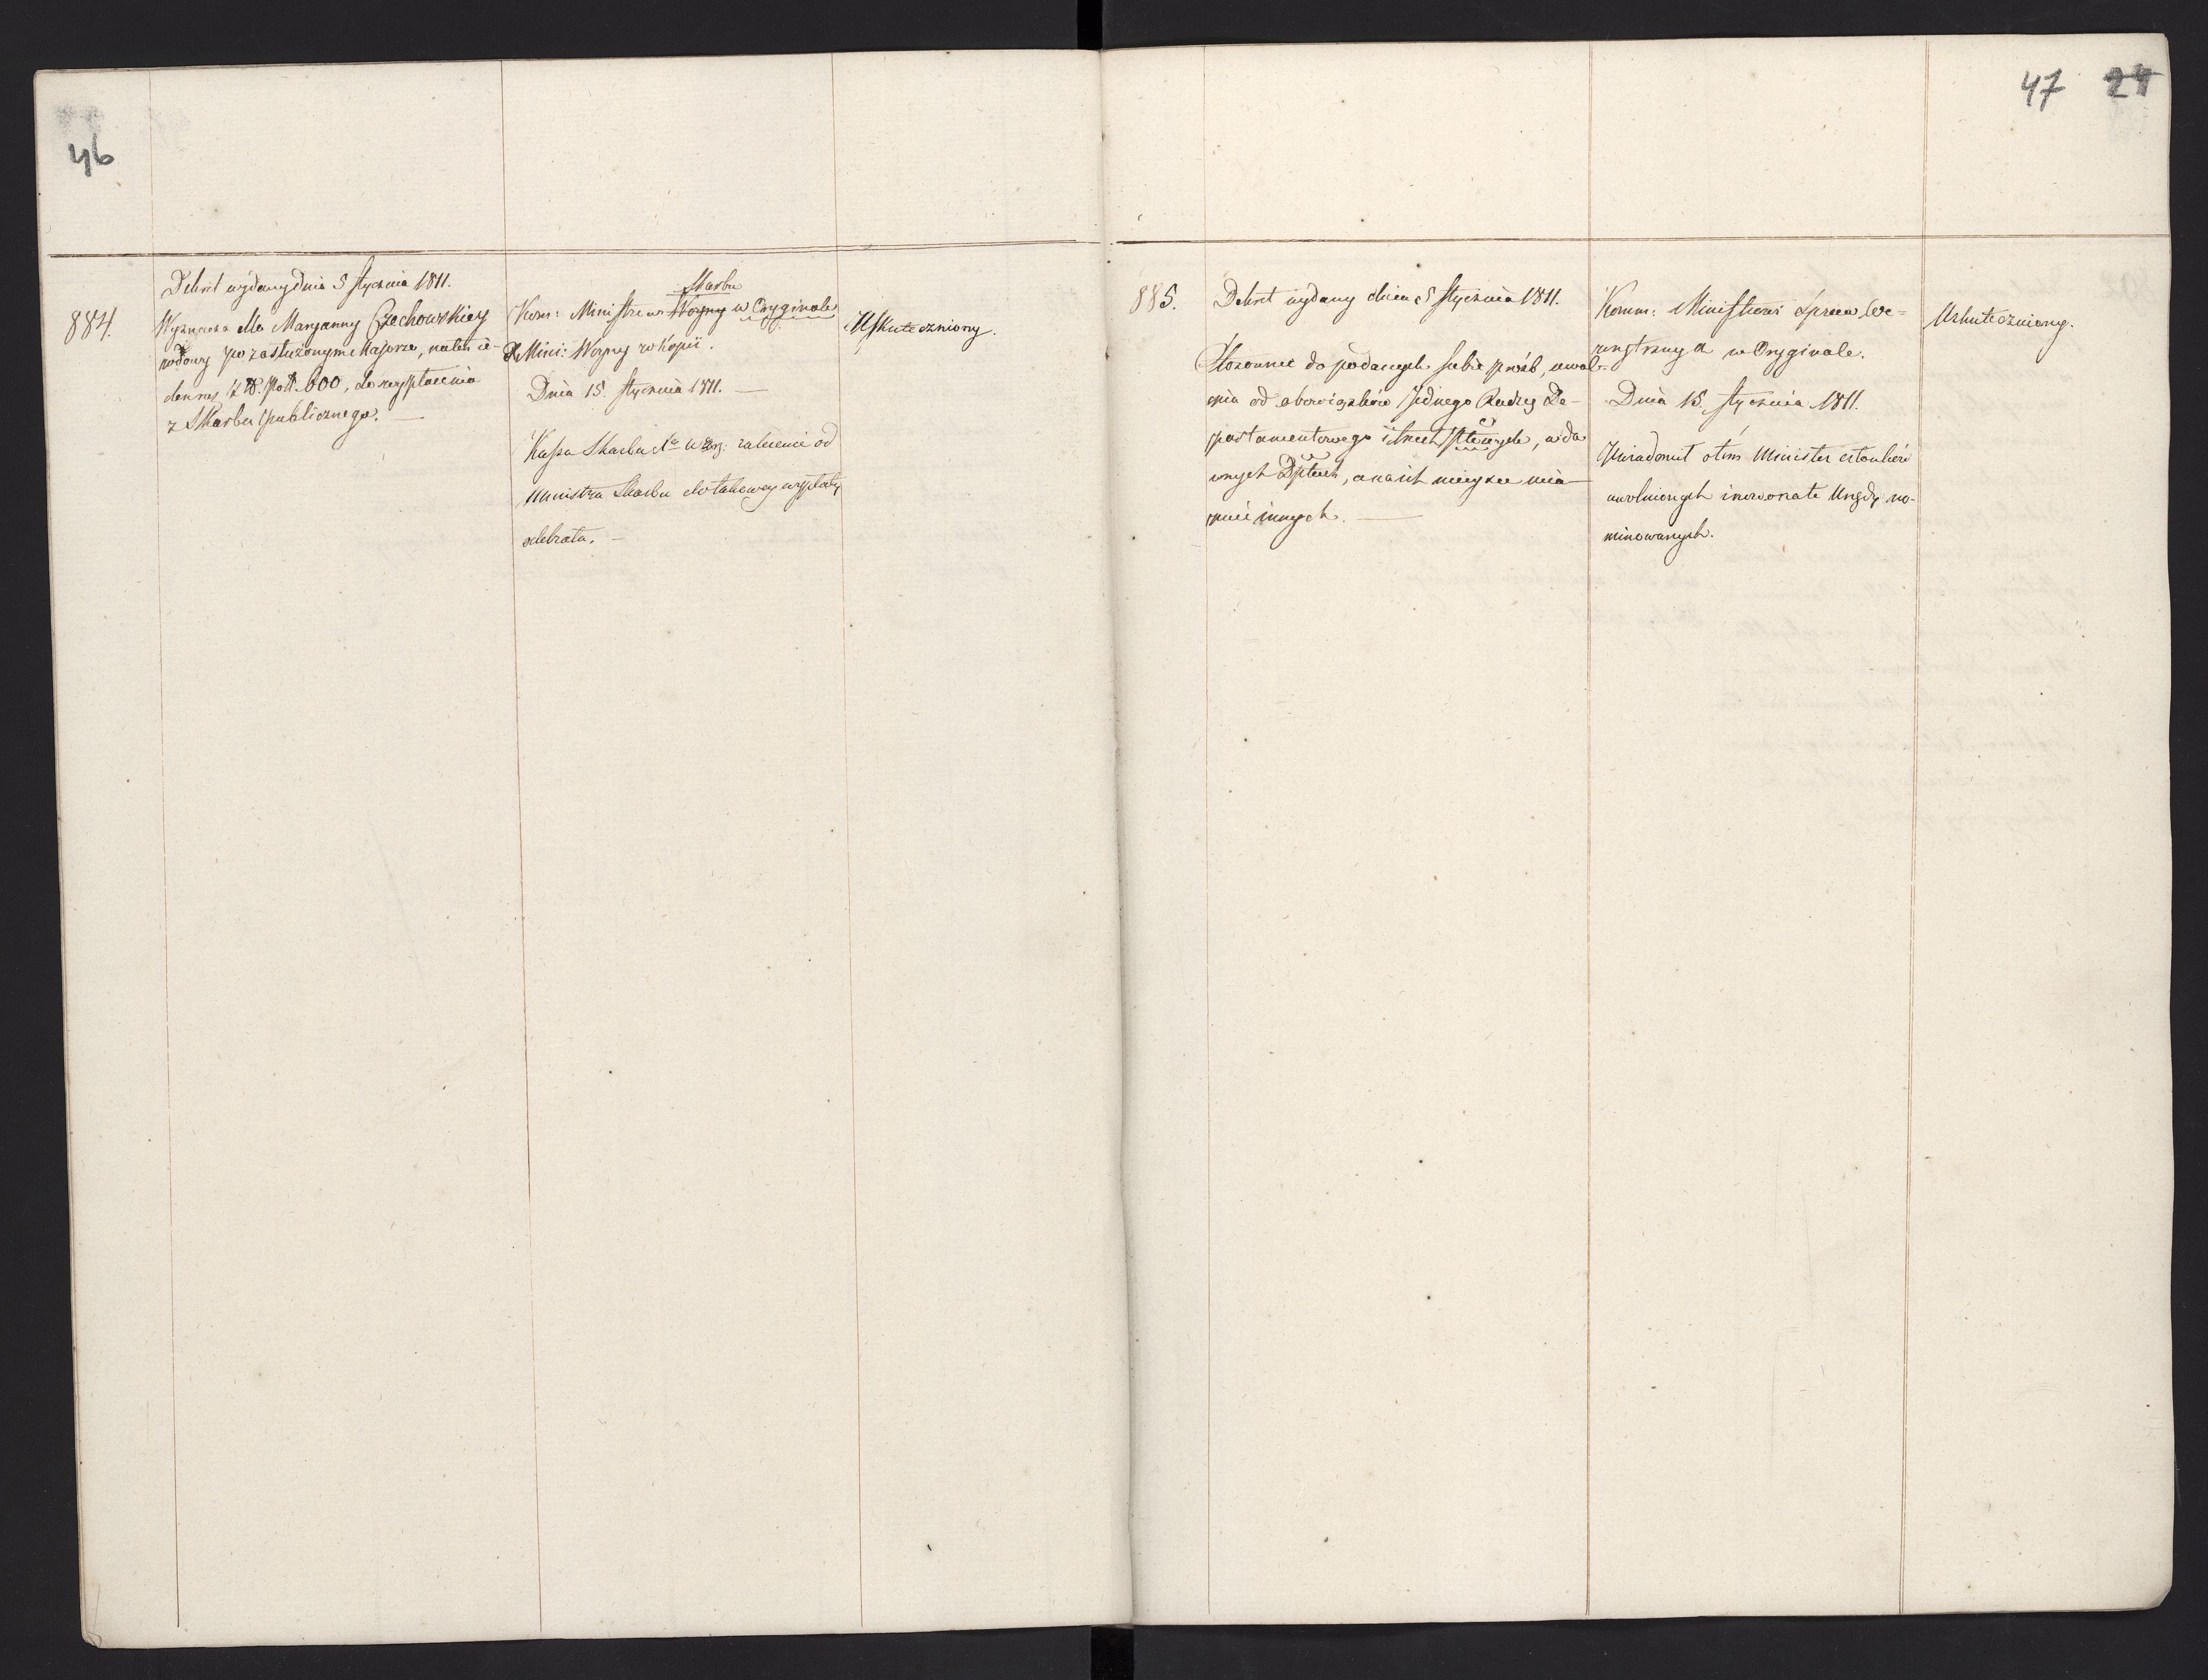 46
884.
Dekret wydany dnia 5 stycznia 1811.
Wyznacza dla Maryanny Czechowskiey
wdowy po zasłużonym Majorze, na ten ie-
den raz Zł. Pol. 600, do wypłacenia
z Skarbu publicznego. —
Skarbu
Kom: Ministrowi Woyny w Oryginale
Mini: Woyny w Kopii.
Dnia 15. stycznia 1811. —
Kassa Skarbu zalecenie od
Ministra Skarbu do takowey wypłaty
odebrała. —
Uskuteczniony.
47 24
885.
Dekret wydany dnia 5 stycznia 1811.
Stosownie do podanych sobie próśb, uwal-
nia od obowiązków jednego Radzcę De-
partamentowego i trzech Ptowych, w da
wnych Dptach, a na ich mieysce mia-
nuie innych. —
Komm: Ministrowi Spraw We-
wnętrznych w Oryginale.
Dnia 15. stycznia 1811.
Zawiadomił o tem Minister członków
uwolnionych i nowo na te Urzędy no-
minowanych.
Uskuteczniony.